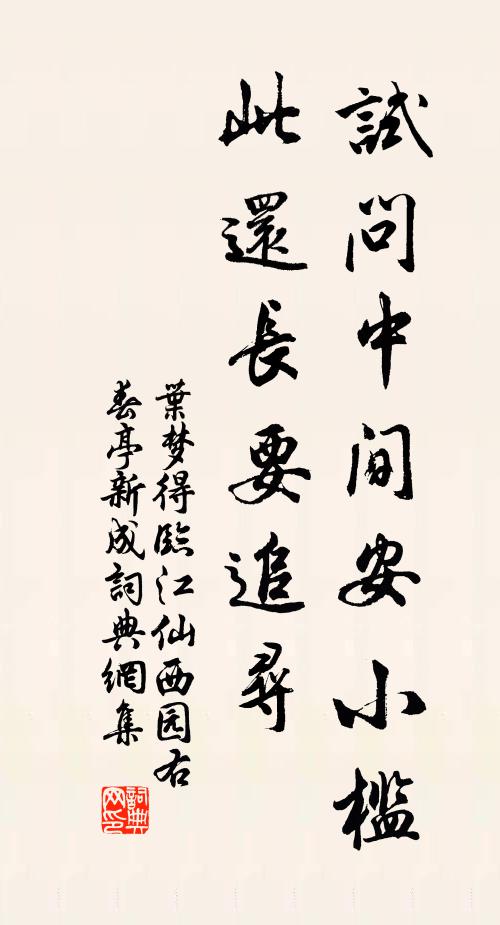 試問中間安小檻
此還長要追尋
葉梦得臨江仙西园右
春亭新成詞典網集
詞典
网印